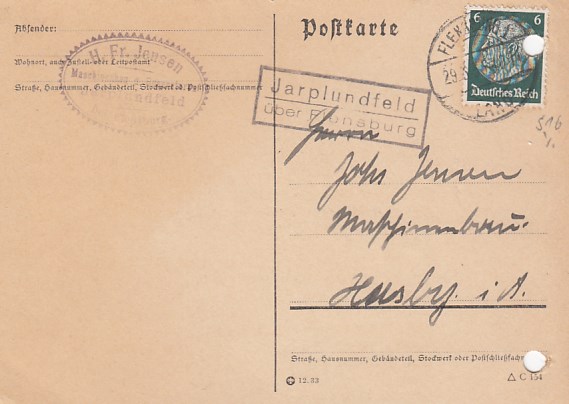 Absender:
Wohnort, auch Zustell- oder Leitpostamt
Straße, Hausnummer, Gebäudeteil, Stockwerk od. Postschließfachnummer
H. Fr. Jensen
Postkarte
Jarplundfeld
über Flensburg
6 6
Deutsches Reich
FLENSBURG
29.
Herrn
Joh. Jensen
Maschinenbau.
Husby. i. A.
Straße, Hausnummer, Gebäudeteil, Stockwerk oder Postschließfach
12.33
C 154